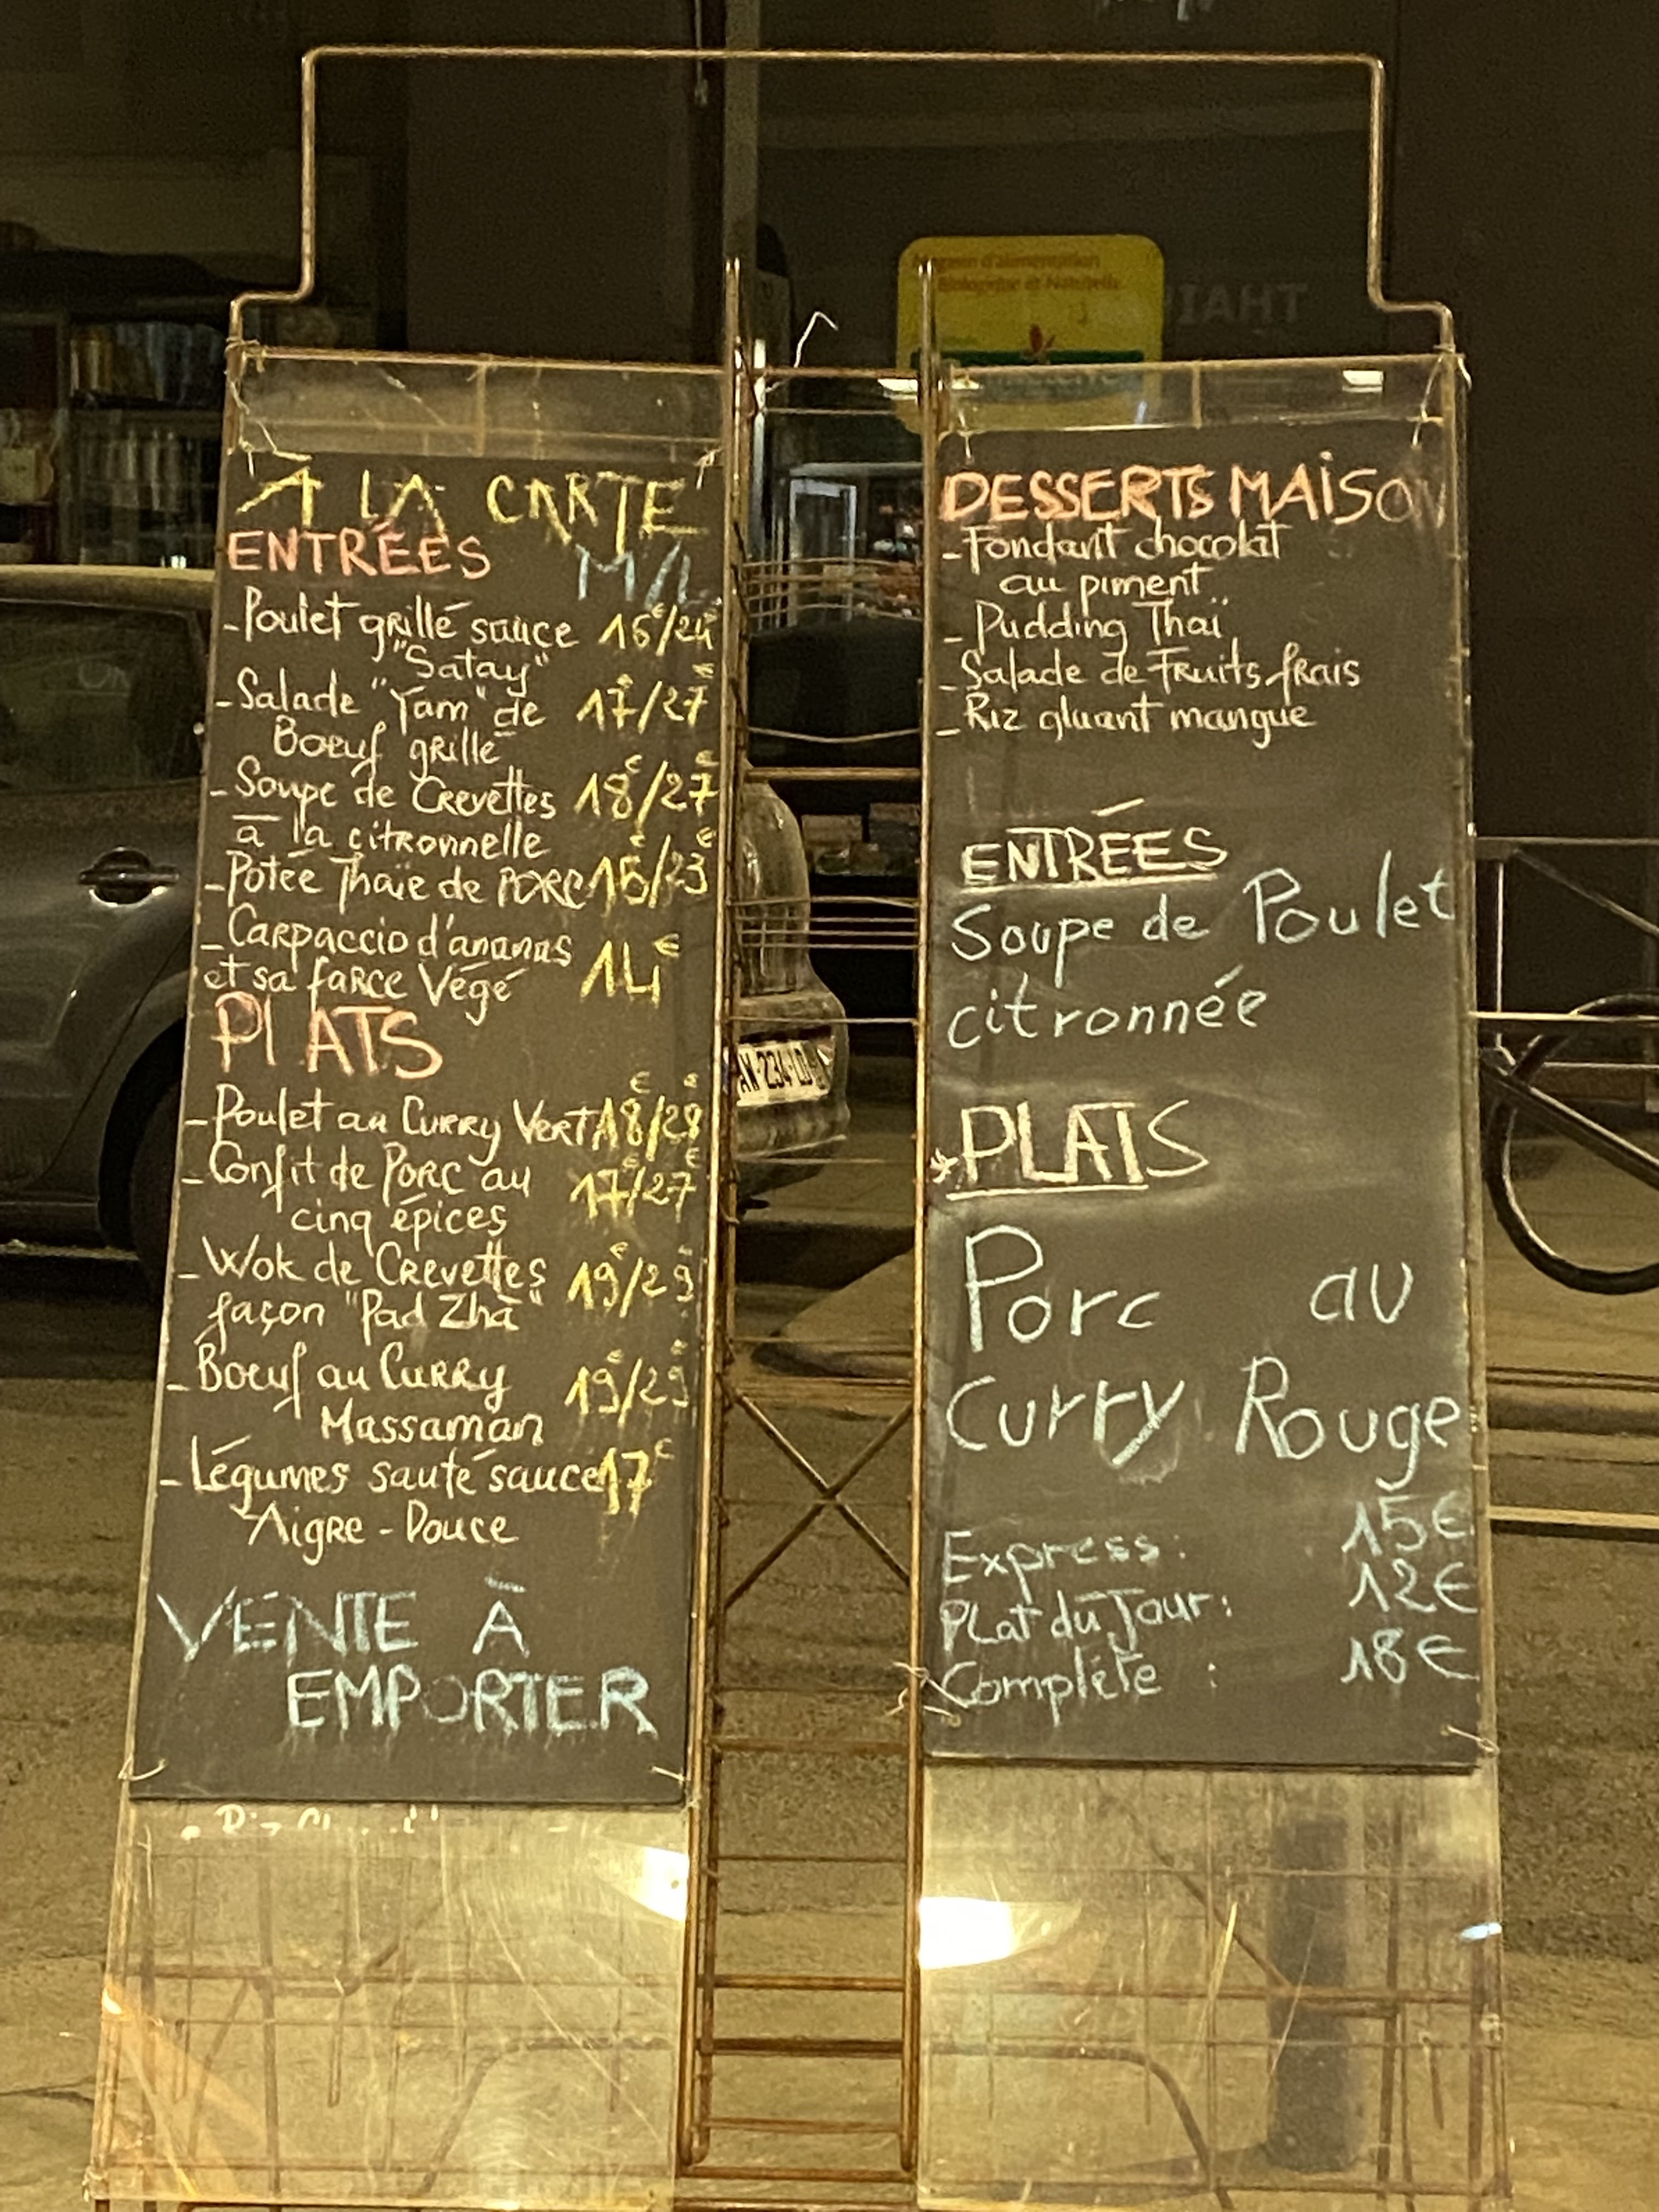 A LA CARTE
ENTRÉES M/L
- Poulet grillé sauce 16€/24€
"Satay"
- Salade "Yam" de 17€/27€
Boeuf grillé
- Soupe de Crevettes 18€/27€
à la citronnelle
- Potée Thaïe de PORC 15€/23€
- Carpaccio d'ananas
et sa farce Végé 14€
PLATS
- Poulet au Curry Vert 18€/28€
- Confit de Porc au 17€/27€
cinq épices
- Wok de Crevettes 19€/29€
façon "Pad Zhà"
- Boeuf au Curry 19€/29€
Massaman
- Légumes sauté sauce 17€
Aigre-Douce
VENTE À
EMPORTER
DESSERTS MAISON
- Fondant chocolat
au piment
- Pudding Thaï
- Salade de Fruits frais
- Riz gluant mangue
ENTRÉES
Soupe de Poulet
citronnée
* PLATS
Porc au
Curry Rouge
Express: 15€
Plat du Jour: 12€
Complète : 18€
Magasin d'alimentation
Biologique et Naturelle
THAI